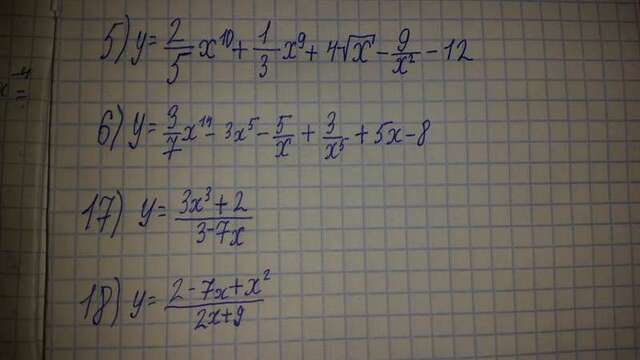 5) y = 2/5 x^10 + 1/3 x^9 + 4√x - 9/x² - 12
6) y = 9/7 x^14 - 3x^5 - 5/x + 3/x^5 + 5x - 8
17) y = (3x³ + 2)/(3 - 7x)
18) y = (2 - 7x + x²)/(2x + 9)